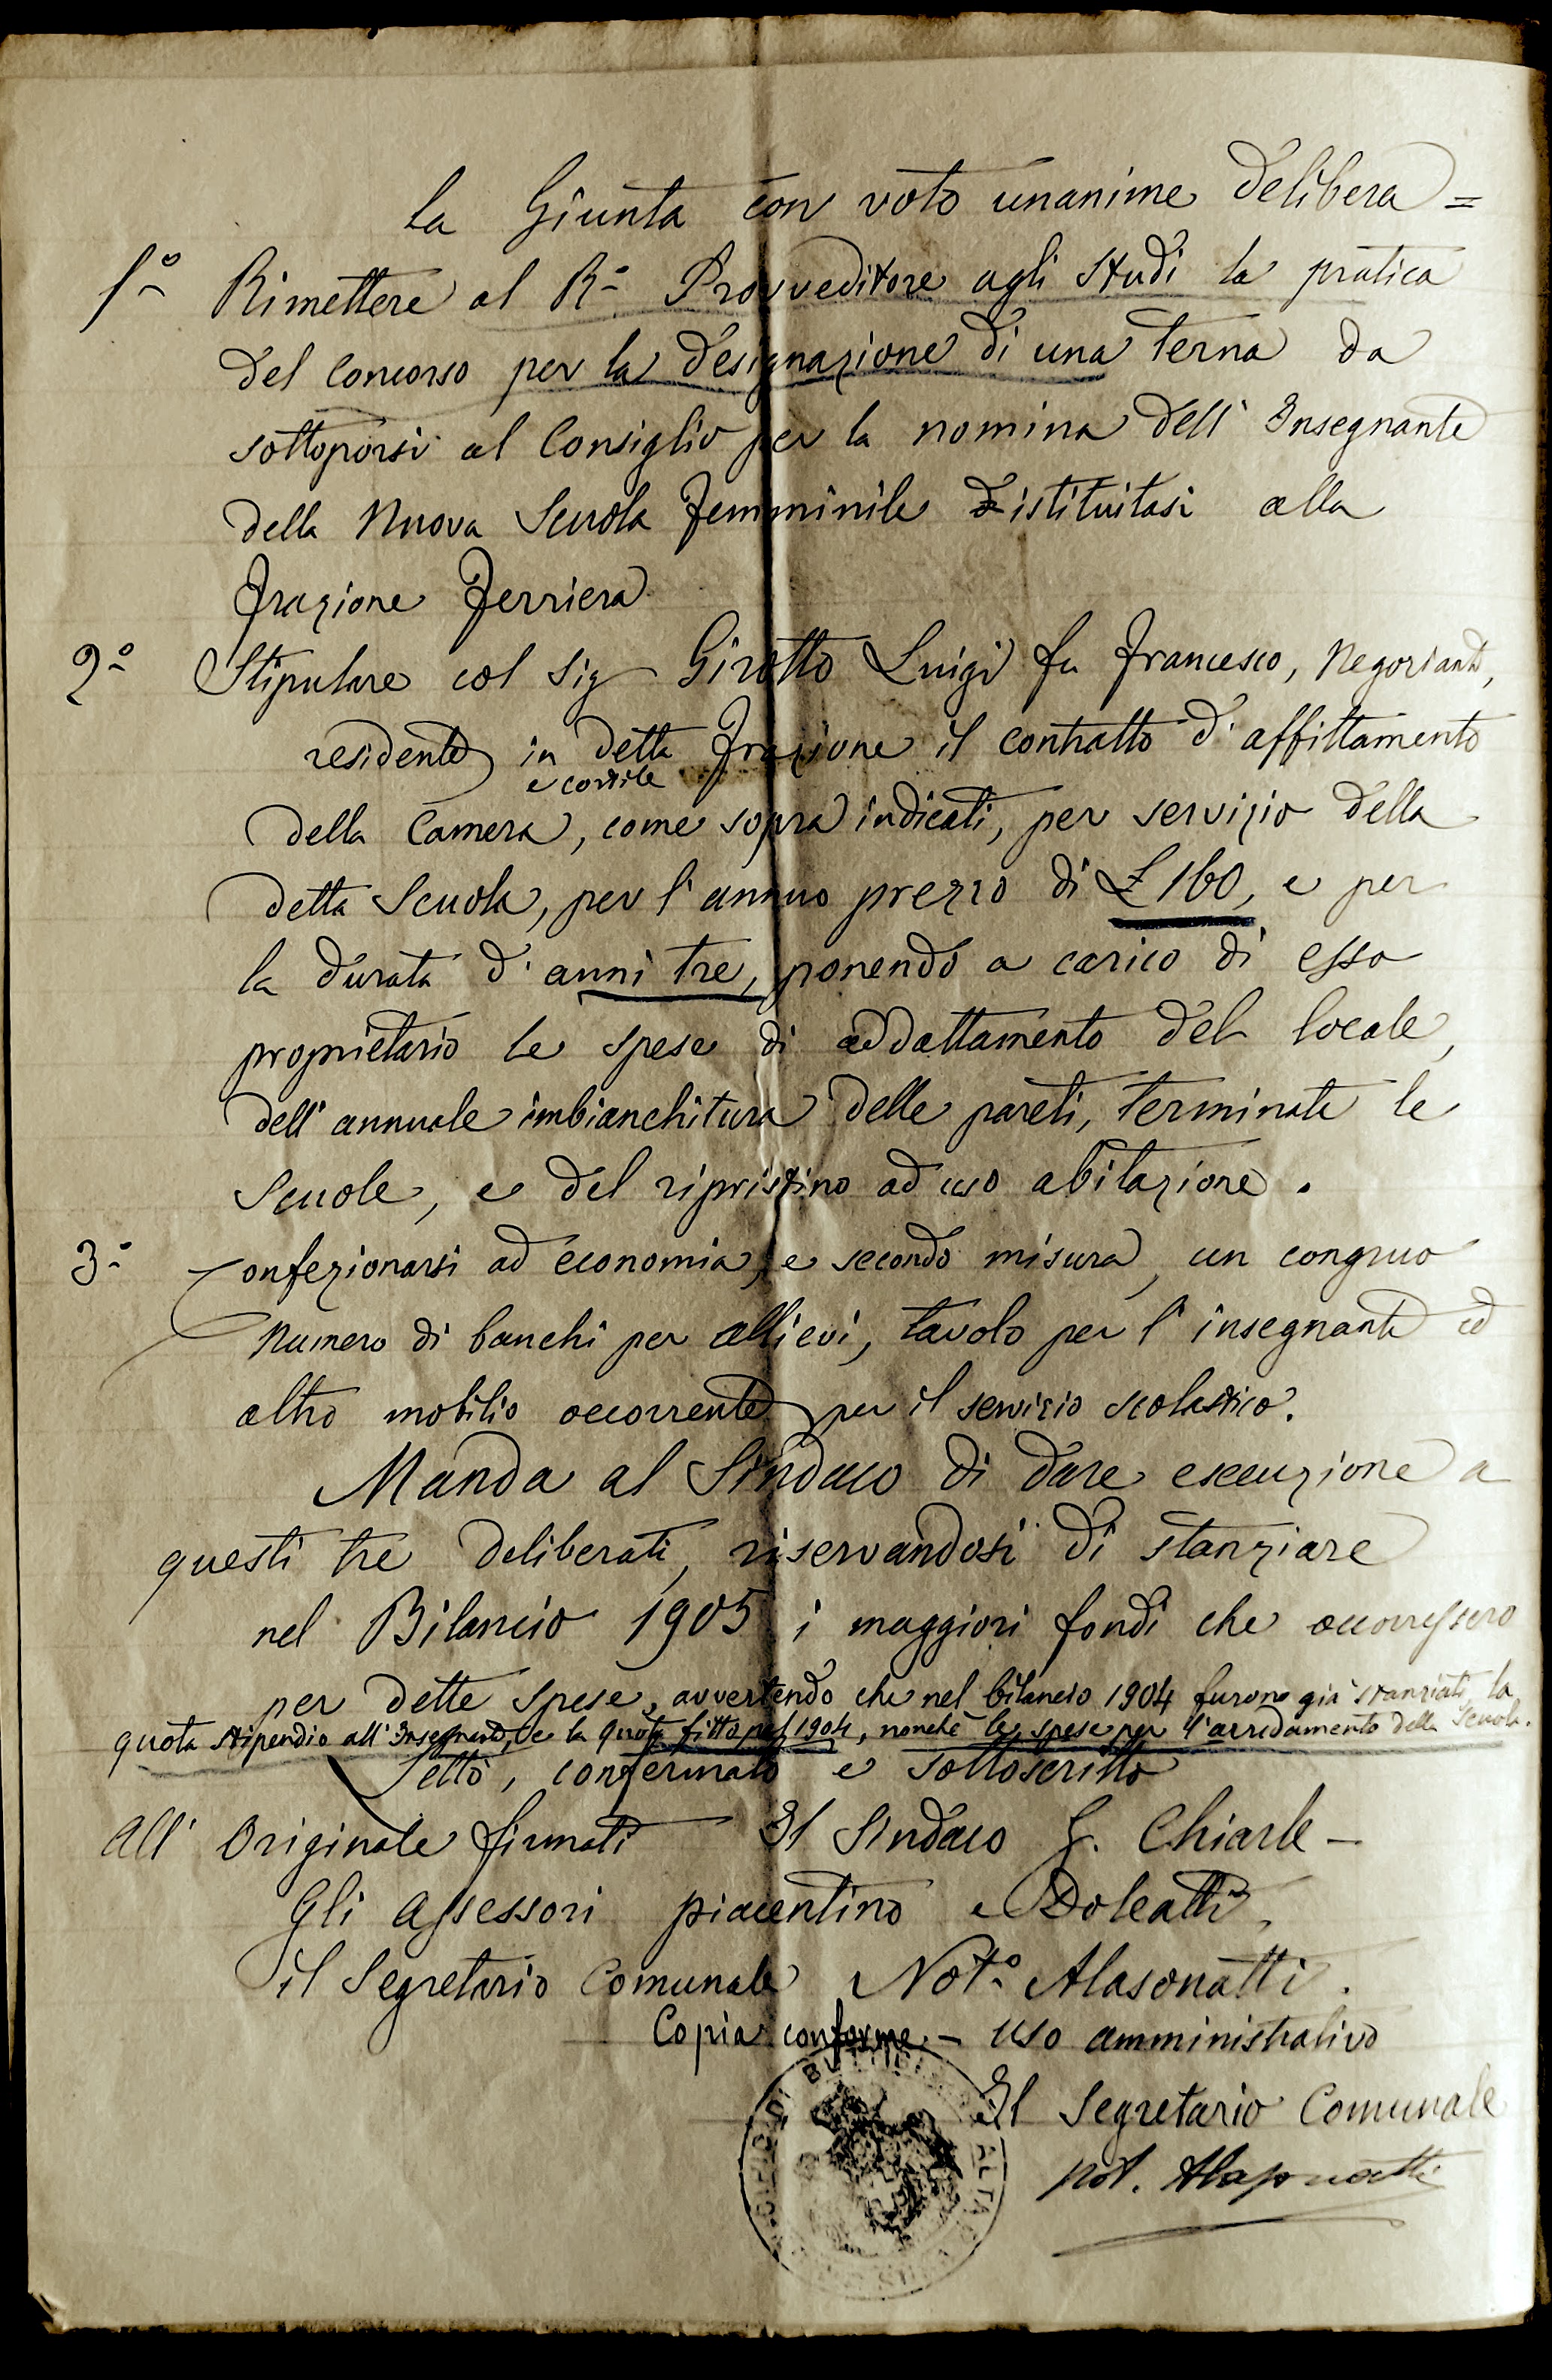 La Giunta con voto unanime delibera =
1º Rimettere al Rº Provveditore agli studi la pratica
del Concorso per la designazione di una terna da
sottoporsi al Consiglio per la nomina dell'Insegnante
della Nuova Scuola femminile istituitasi alla
frazione Ferriera
2º Stipulare col Sig Girotto Luigi fu Francesco, Negoziante,
residente in detta frazione il contratto d'affittamento
e cortile
della Camera, come sopra indicati, per servizio della
detta Scuola, per l'annuo prezzo di £ 160, e per
la durata d'anni tre, ponendo a carico di esso
proprietario le spese di addattamento del locale,
dell'annuale imbianchitura delle pareti, terminate le
Scuole, e del ripristino ad uso abitazione.
3º Confezionarsi ad economia, e secondo misura, un congruo
numero di banchi per allievi, tavolo per l'insegnante ed
altro mobilio occorrente per il servizio scolastico.
Manda al Sindaco di dare esecuzione a
questi tre deliberati, riservandosi di stanziare
nel Bilancio 1905 i maggiori fondi che occorressero
per dette spese, avvertendo che nel bilancio 1904 furono già stanziati la
quota stipendio all'Insegnante, e la quota fitto pel 1904, nonchè le spese per l'arredamento della Scuola.
Letto, confermato e sottoscritto
All'Originale firmati Il Sindaco G. Chiarle -
Gli Assessori Piacentino e Doleatti,
il Segretario Comunale Notº Alasonatti.
Copia conforme - uso amministrativo
Il Segretario Comunale
Not. Alasonatti